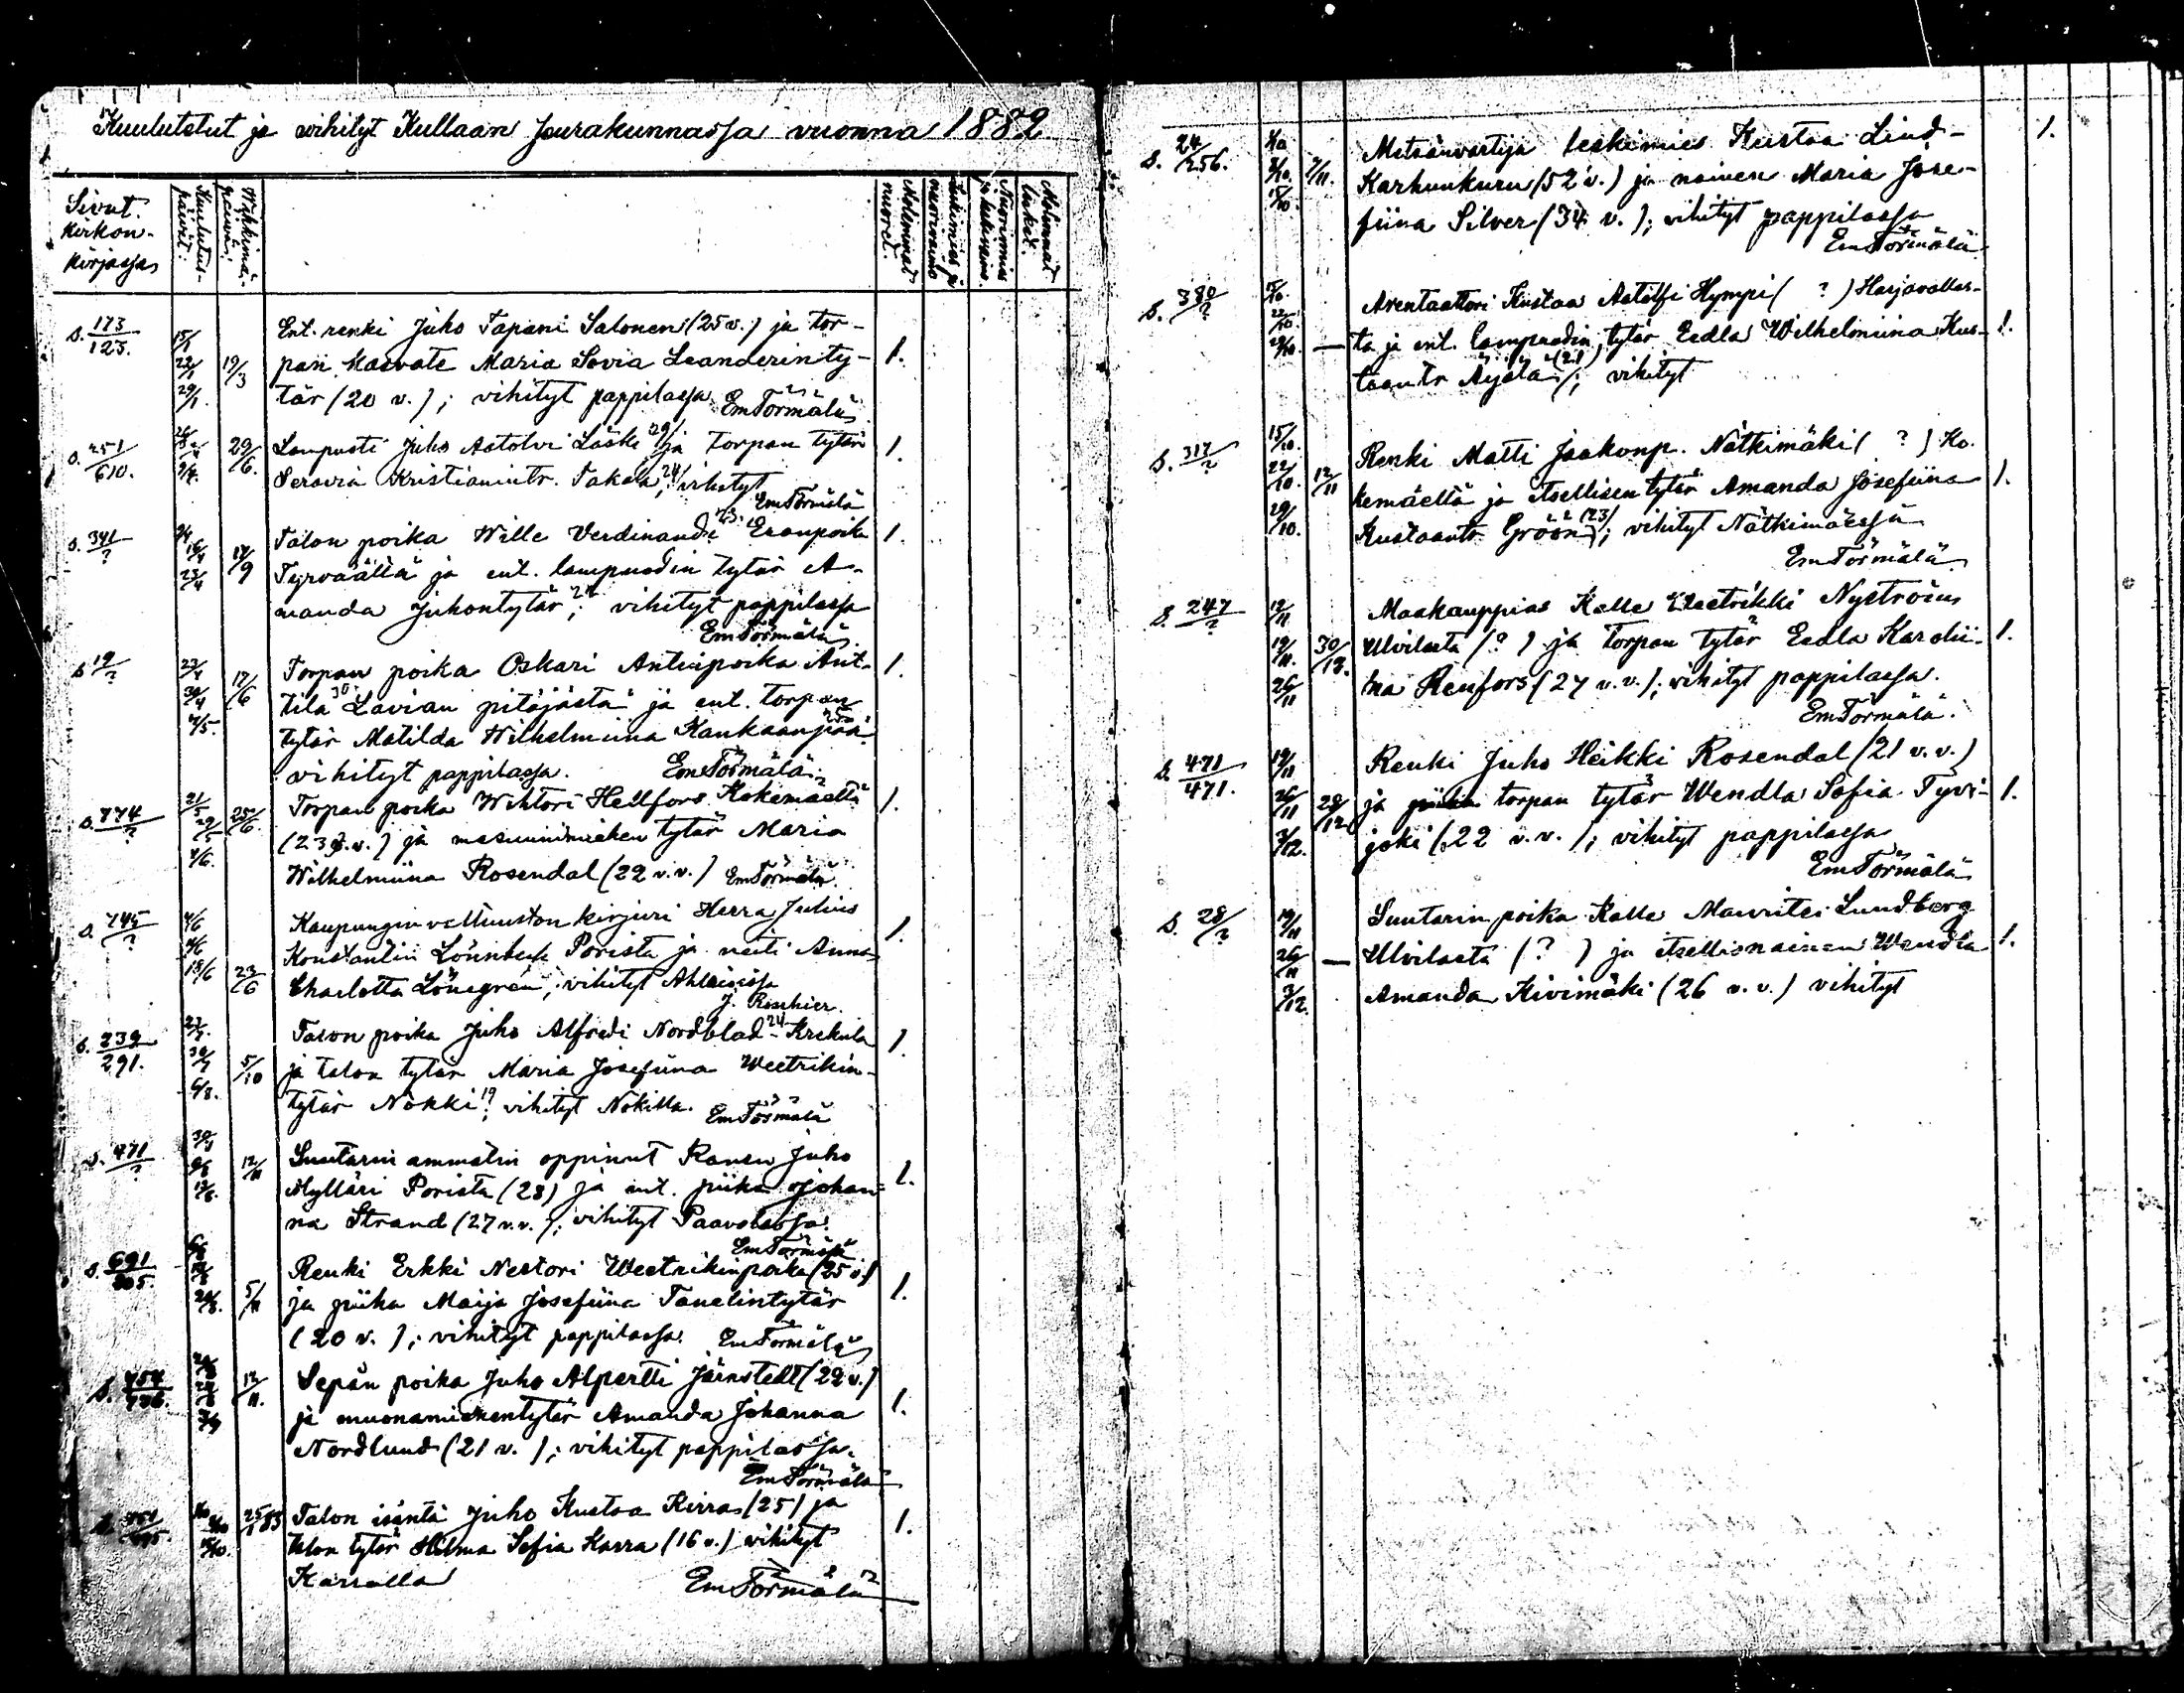 Kuulutetut ja vihityt Kullaan seurakunnassa vuonna 1882
Sivut. Kirkonkirjassa
Kuulutus-päivät.
Vihkimä-päivä.
Molemmat nuoret.
Leskimies ja nuorivaimo
Nuorimies ja leskivaimo.
Molemmat lesket.
s. 173/123. 15/1 22/1 29/1. 19/3
Ent. renki Juho Tapani Salonen (25 v.) ja tor-
pan kasvate Maria Sovia Leanderinty- 1.
tär (20 v.); vihityt pappilassa EmTörmälä
s. 251/610. 9/4. 29/6.
Lampuoti Juho Aatolvi Läske 29/ ja torpan tytär 1.
Seravia Kristianintr. Takala, 24/ vihityt
EmTörmälä
s. 341/? 9/4 16/4 23/4 17/9
Talon poika Wille Verdinandi 23. Eranpoika 1.
Tyrväältä ja ent. lampuodin tytär A-
manda Juhontytär, 24 vihityt pappilassa
EmTörmälä
s 19/? 23/4 30/4 7/5. 17/6
Torpan poika Oskari Antinpoika Ant- 1.
tila 30. Lavian pitäjästä ja ent. torpan
tytär Matilda Wilhelmiina Kankaanpää
vihityt pappilassa. EmTörmälä
s. 774/? 21/5 29/5 4/6. 25/6.
Torpan poika Wihtori Hellfors Kokemäeltä 1.
(23 v.) ja masuunimiehen tytär Maria
Wilhelmiina Rosendal (22 v.v.) EmTörmälä.
s. 745/? 4/6 11/6 18/6 23/6
Kaupungin valtuuston kirjuri Herra Julius 1.
Konstantin Lönnbeck Porista ja neiti Anna
Charlotta Lönegrén; vihityt Ahlaisissa
J. Roschier.
s. 239/291. 23/7. 30/7 6/8. 5/10
Talon poika Juho Alfredi Nordblad 24 - Krekula 1.
ja talon tytär Maria Josefiina Weetrikin-
tytär Nokki 19; vihityt Nokilla. EmTörmälä
s. 471/? 12/11
Suutarin ammatin oppinut Ranen Juho
Mylläri Porista (28) ja ent. piika Johan- 1.
na Strand (27 v.v.); vihityt Paavolassa.
EmTörmälä
s. 691/805. 5/11
Renki Erkki Nestori Weetrikinpoika (25 v.)
ja piika Maija Josefiina Tanelintytär 1.
(20 v.); vihityt pappilassa. EmTörmälä
s. 12/11.
Sepän poika Juho Alpertti Järnstedt (22 v.)
ja muonamiehentytär Amanda Johanna 1.
Nordlund (21 v.); vihityt pappilassa.
EmTörmälä
1/10 8/10 15/10. 25/1 83
Talon isäntä Juho Kustaa Kirra (25) ja
talon tytär Hilma Sofia Karra (16 v.) vihityt 1.
Karralla EmTörmälä
s. 24/256. 1/10 8/10. 15/10. 7/11.
Metsänvartija leskimies Kustaa Lind- 1.
Karhunkuru (52 v.) ja nainen Maria Jose-
fiina Silver (34 v.); vihityt pappilassa
EmTörmälä
s. 380/? 15/10. 22/10. 29/10. —
Arentaattori Kustaa Aatolfi Hympi ( ? ) Harjavallas-
ta ja ent. lampuodin tytär Eedla Wilhelmiina Kus- 1.
taantr Äijälä (21); vihityt
s. 317/? 15/10. 22/10. 29/10. 12/11
Renki Matti Jaakonp. Nätkimäki ( ? ) Ko-
kemäeltä ja itsellisen tytär Amanda Josefiina 1.
Kustaantr Gröön (23); vihityt Nätkimäessä
EmTörmälä
s. 247/? 12/11 19/11. 26/11 30/12.
Maakauppias Kalle Weetrikki Nyström
Ulvilasta ( ? ) ja torpan tytär Eedla Karolii- 1.
na Renfors (27 v.v.); vihityt pappilassa.
EmTörmälä.
s. 471/471. 19/11 26/11 3/12. 28/12
Renki Juho Heikki Rosendal (21 v.v.)
ja piika torpan tytär Wendla Sofia Tyvi- 1.
joki (22 v.v.); vihityt pappilassa
EmTörmälä
s. 28/? 19/11 26/11 3/12. —
Suutarin poika Kalle Mauritsi Lundberg
Ulvilasta ( ? ) ja itsellisnainen Wendla 1.
Amanda Kivimäki (26 v.v.) vihityt